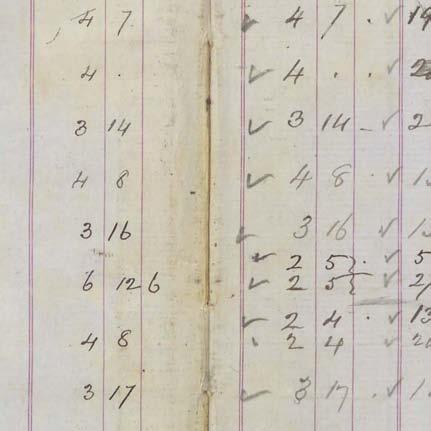 4 7 ✓ 4 7 . ✓ 19
4 . ✓ 4 . . ✓
3 14 ✓ 3 14 - ✓ 2
4 8 ✓ 4 8 . ✓
3 16 ✓ 3 16 ✓
✓ 2 5 } . ✓ 5
6 12 6 ✓ 2 5 } ✓
✓ 2 4 . ✓ 13
4 8 2 4 ✓
3 17 ✓ 3 17 . ✓